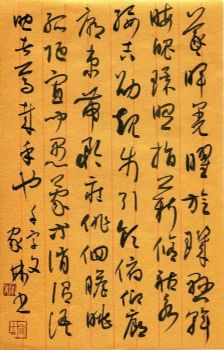 羲暉朗曜旋璣懸斡
晦魄環照指薪修祜永
綏吉劭矩步引領俯仰廊
廟束帶矜莊徘徊瞻眺
孤陋寡聞愚蒙等誚謂語
助者焉哉乎也千字文
家 書